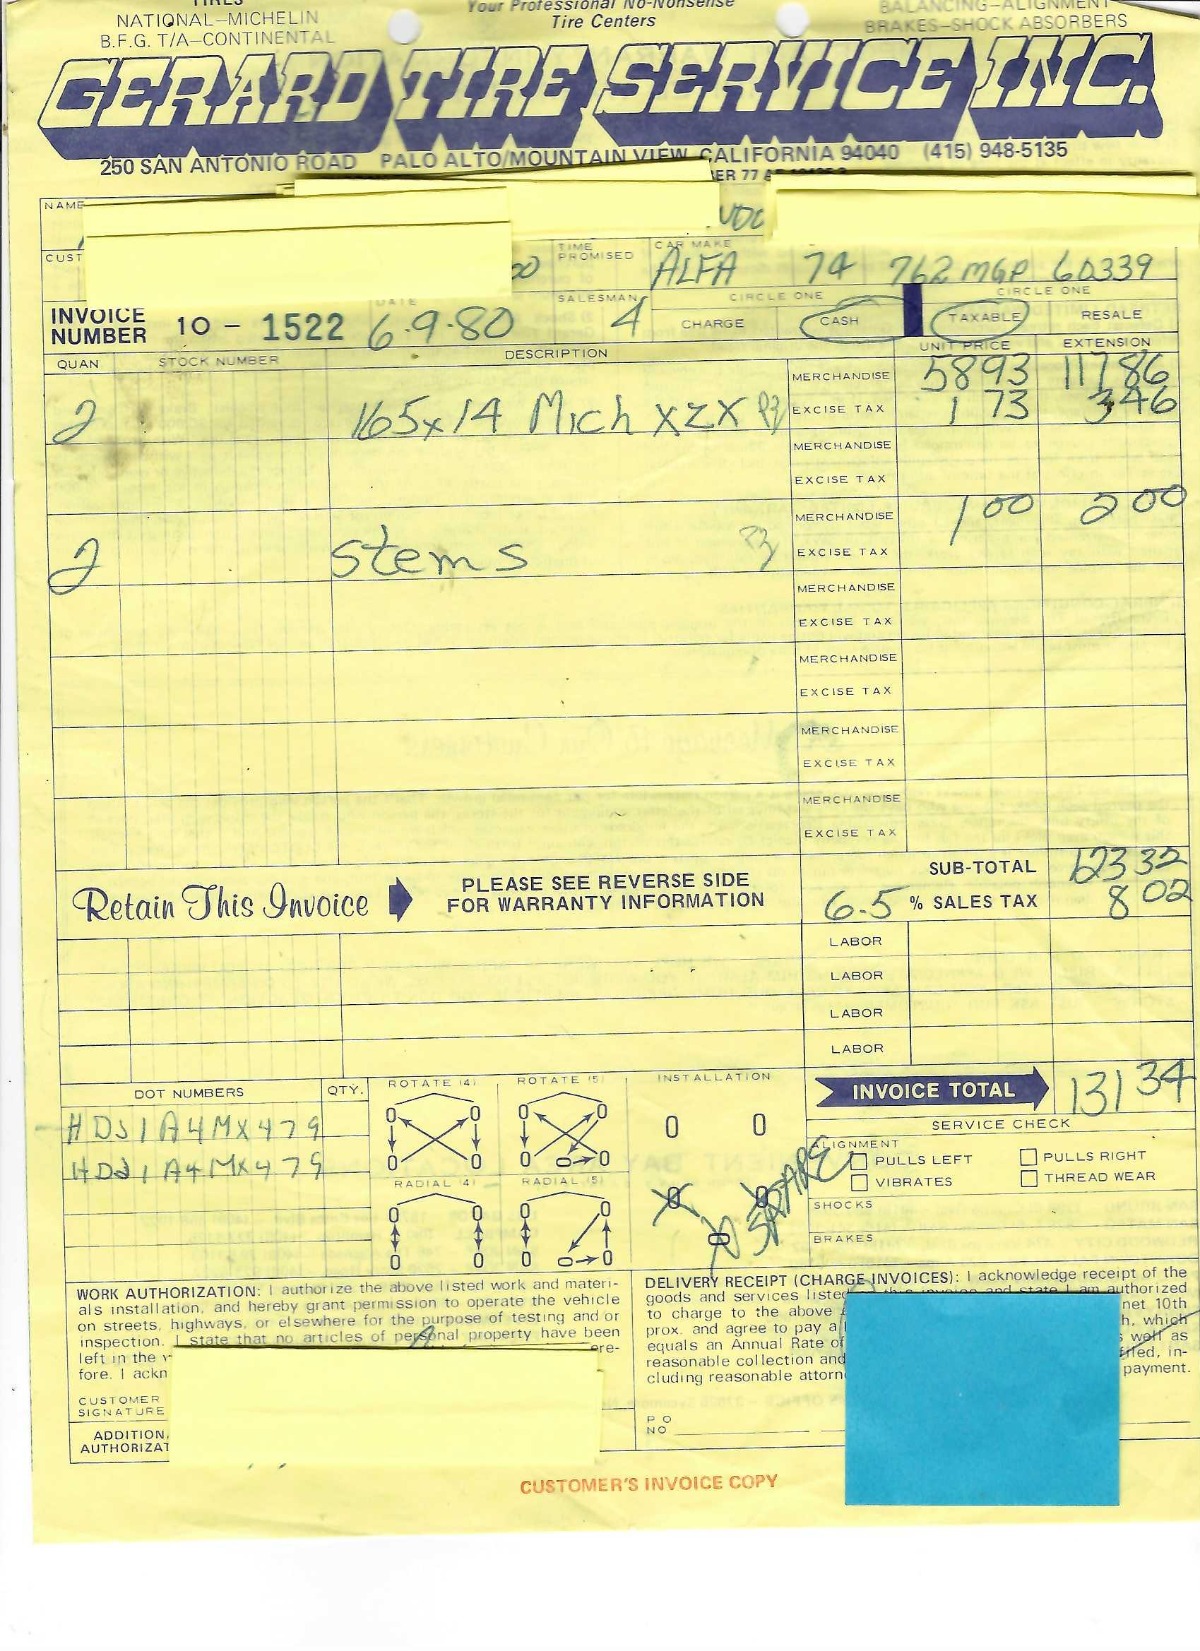 NATIONAL—MICHELIN
B.F.G. T/A—CONTINENTAL
Your Professional No-Nonsense
Tire Centers
BALANCING—ALIGNMENT
BRAKES—SHOCK ABSORBERS
GERARD TIRE SERVICE INC.
250 SAN ANTONIO ROAD PALO ALTO/MOUNTAIN VIEW, CALIFORNIA 94040 (415) 948-5135
NAME
CUST
TIME PROMISED
CAR MAKE
ALFA 74 762 MGP 60339
INVOICE NUMBER 10 - 1522
DATE 6-9-80
SALESMAN 4
CIRCLE ONE
CHARGE CASH
CIRCLE ONE
TAXABLE RESALE
QUAN STOCK NUMBER DESCRIPTION UNIT PRICE EXTENSION
MERCHANDISE 58 93 117 86
2 165x14 Mich XZX EXCISE TAX 1 73 3 46
MERCHANDISE
EXCISE TAX
MERCHANDISE 1 00 2 00
2 stems EXCISE TAX
MERCHANDISE
EXCISE TAX
MERCHANDISE
EXCISE TAX
MERCHANDISE
EXCISE TAX
MERCHANDISE
EXCISE TAX
Retain This Invoice
PLEASE SEE REVERSE SIDE
FOR WARRANTY INFORMATION
SUB-TOTAL 123 32
6.5 % SALES TAX 8 02
LABOR
LABOR
LABOR
LABOR
DOT NUMBERS QTY.
HDJ1A4MX479
HDJ1A4MX479
ROTATE (4) ROTATE (5) INSTALLATION
RADIAL (4) RADIAL (5)
SPARE
INVOICE TOTAL 131 34
SERVICE CHECK
ALIGNMENT
PULLS LEFT PULLS RIGHT
VIBRATES THREAD WEAR
SHOCKS
BRAKES
WORK AUTHORIZATION: I authorize the above listed work and materi-
als installation, and hereby grant permission to operate the vehicle
on streets, highways, or elsewhere for the purpose of testing and or
inspection. I state that no articles of personal property have been
left in the ere-
fore. I ackn
CUSTOMER
SIGNATURE
ADDITION
AUTHORIZAT
DELIVERY RECEIPT (CHARGE INVOICES): I acknowledge receipt of the
goods and services listed this invoice and state I am authorized
to charge to the above net 10th
prox. and agree to pay a h, which
equals an Annual Rate of as well as
reasonable collection and in-
cluding reasonable attorn payment.
P O
NO
CUSTOMER'S INVOICE COPY